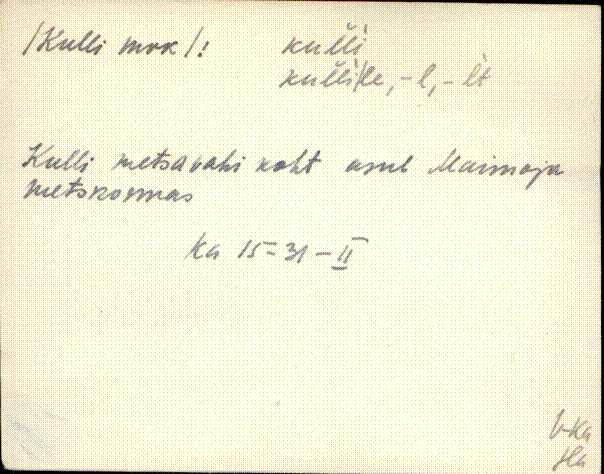 /Kulli mvk/: kul̆l̆i
kul̆l̆i/le, -l, -lt
Kulli metsavahi koht asub Maimoja
metskonnas
Ka 15=31-II
V-Ka